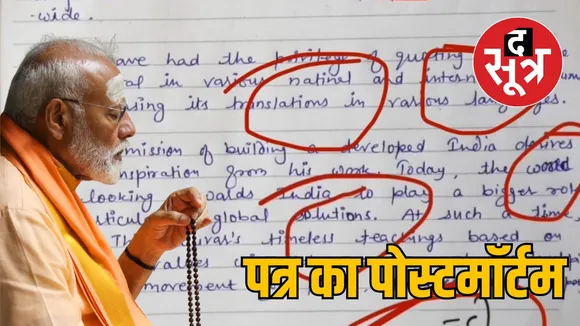 -wide.
द
सूत्र
ave had the privilege of quoting
al in various natinal and intern
sing its translations in various languages.
mission of building a developed India derives
nspiration from his work. Today, the world
looking wards India to play a bigger rol
ticul global solutions. At such a time
Th uvar's timeless teachings based on
values
movement
पत्र का पोस्टमॉर्टम